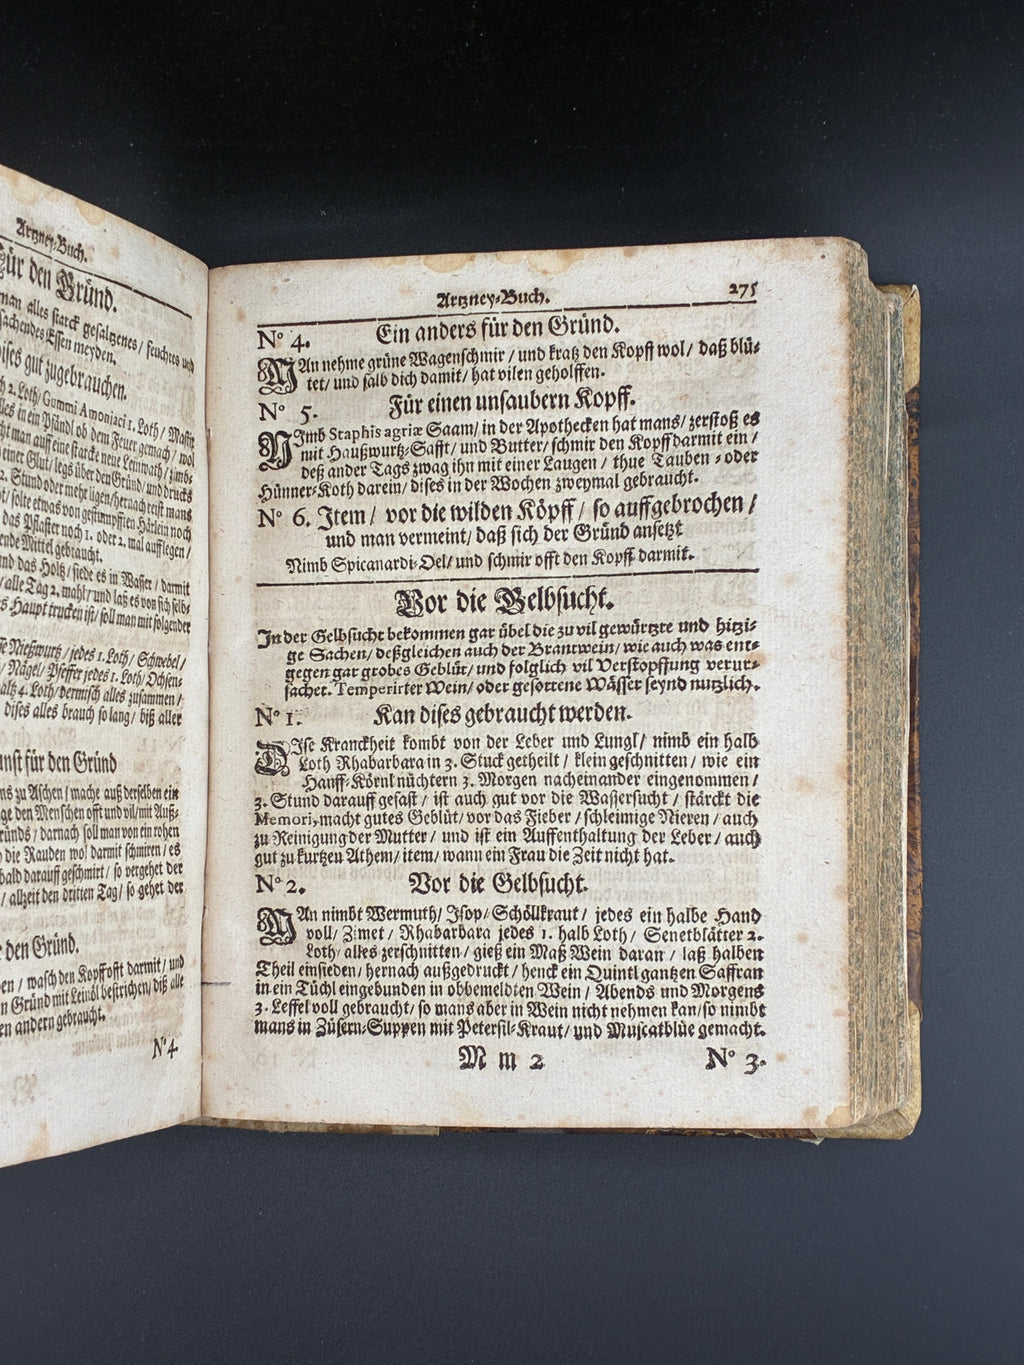 Artzney-Buch.
Für den Gründ.
man alles starck gesaltzenes / feuchtes und
machendes Essen meyden.
dises gut zugebrauchen.
2. Loth / Gummi Amoniaci 1. Loth / Mastix
alles in ein Pfändl ob dem Feuer gemach / wol
man auff eine starcke neue Leinwath / zimb-
einer Glut / legs über den Gründ / und drucks
2. Stund oder mehr ligen / hernach reist mans
solte etwas von gestumpfften Härlein noch
das Pflaster noch 1. oder 2. mal aufflegen /
Mittel gebraucht.
und das Holtz / siede es in Wasser / darmit
/ alle Tag 2. mahl / und laß es von sich selb-
Haupt trucken ist / soll man mit folgender
Nießwurtz / jedes 1. Loth / Schwebel /
/ Nägel / Pfeffer jedes 1. Loth / Ochsen-
4. Loth / vermisch alles zusammen /
dises alles brauch so lang / biß aller
für den Gründ
zu Aschen / mache auß derselben ein
den Menschen offt und vil / mit Auß-
Gründs / darnach soll man von ein rohen
die Rauden wol darmit schmiren / es
bald darauff geschmirt / so vergehet der
/ allzeit den dritten Tag / so gehet der
den Gründ.
/ wasch den Kopff offt darmit / und
Gründ mit Leinöl bestrichen / diß alle
andern gebraucht.
N° 4.
Artzney-Buch. 275
N° 4. Ein anders für den Gründ.
MAn nehme grüne Wagenschmir / und kratz den Kopff wol / daß blü-
tet / und salb dich damit / hat vilen geholffen.
N° 5. Für einen unsaubern Kopff.
NImb Staphis agriæ Saam / in der Apothecken hat mans / zerstoß es
mit Haußwurtz-Safft / und Butter / schmir den Kopff darmit ein /
deß ander Tags zwag ihn mit einer Laugen / thue Tauben- oder
Hünner-Koth darein / dises in der Wochen zweymal gebraucht.
N° 6. Item / vor die wilden Köpff / so auffgebrochen /
und man vermeint / daß sich der Gründ ansetzt
Nimb Spicanardi-Oel / und schmir offt den Kopff darmit.
Vor die Gelbsucht.
In der Gelbsucht bekommen gar übel die zu vil gewürtzte und hitzi-
ge Sachen / deßgleichen auch der Brantwein / wie auch was ent-
gegen gar grobes Geblüt / und folglich vil Verstopffung verur-
sachet. Temperirter Wein / oder gesottene Wässer seynd nutzlich.
N° 1. Kan dises gebraucht werden.
DIse Kranckheit kombt von der Leber und Lungl / nimb ein halb
Loth Rhabarbara in 3. Stuck getheilt / klein geschnitten / wie ein
Hanff-Körnl nüchtern 3. Morgen nacheinander eingenommen /
3. Stund darauff gefast / ist auch gut vor die Wassersucht / stärckt die
Memori, macht gutes Geblüt / vor das Fieber / schleimige Nieren / auch
zu Reinigung der Mutter / und ist ein Auffenthaltung der Leber / auch
gut zu kurtzen Athem / item / wann ein Frau die Zeit nicht hat.
N° 2. Vor die Gelbsucht.
MAn nimbt Wermuth / Isop / Schöllkraut / jedes ein halbe Hand
voll / Zimet / Rhabarbara jedes 1. halb Loth / Senetblätter 2.
Loth / alles zerschnitten / gieß ein Maß Wein daran / laß halben
Theil einsieden / hernach außgedruckt / henck ein Quintl gantzen Saffran
in ein Tüchl eingebunden in obbemeldten Wein / Abends und Morgens
3. Leffel voll gebraucht / so mans aber in Wein nicht nehmen kan / so nimbt
mans in Züsern-Suppen mit Petersil-Kraut / und Muscatblüe gemacht.
M m 2 N° 3.